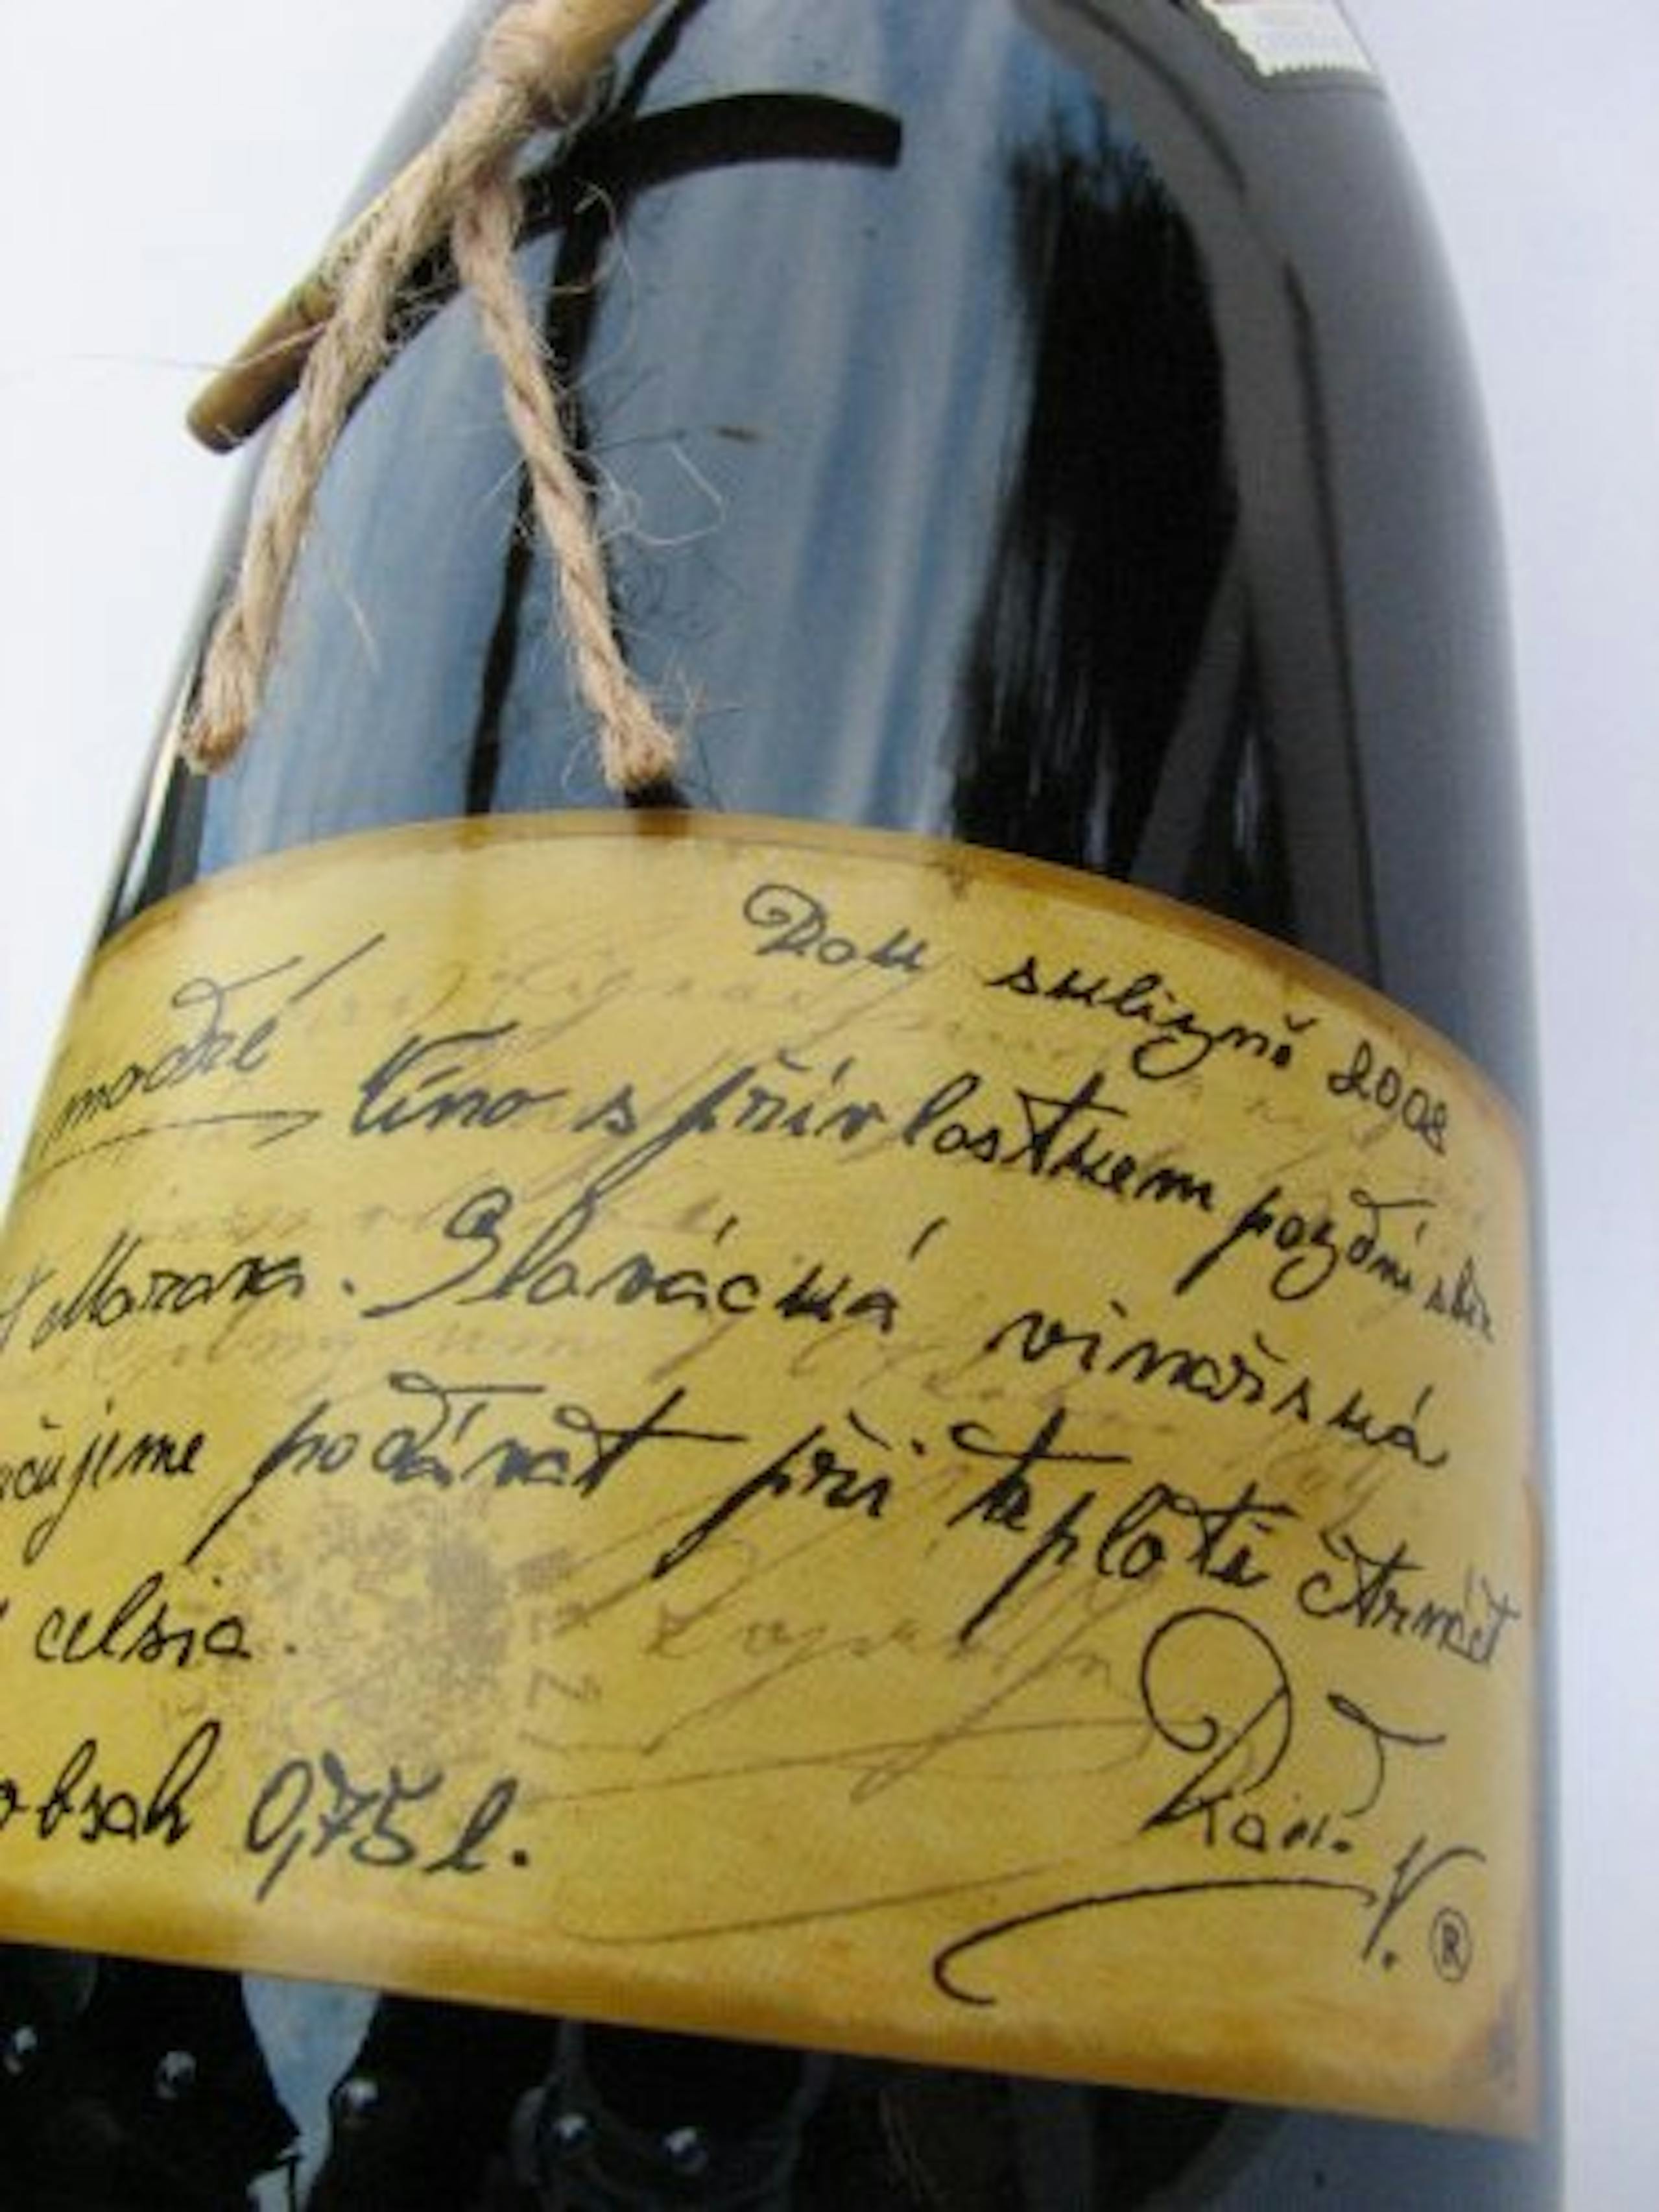 Rok sklizně 2008
modré Víno s přívlastkem pozdní sběr
Morava. Slovácká vinařská
učujeme podávat při teplotě čtrnáct
celsia.
obsah 0,75 l.
V. ®